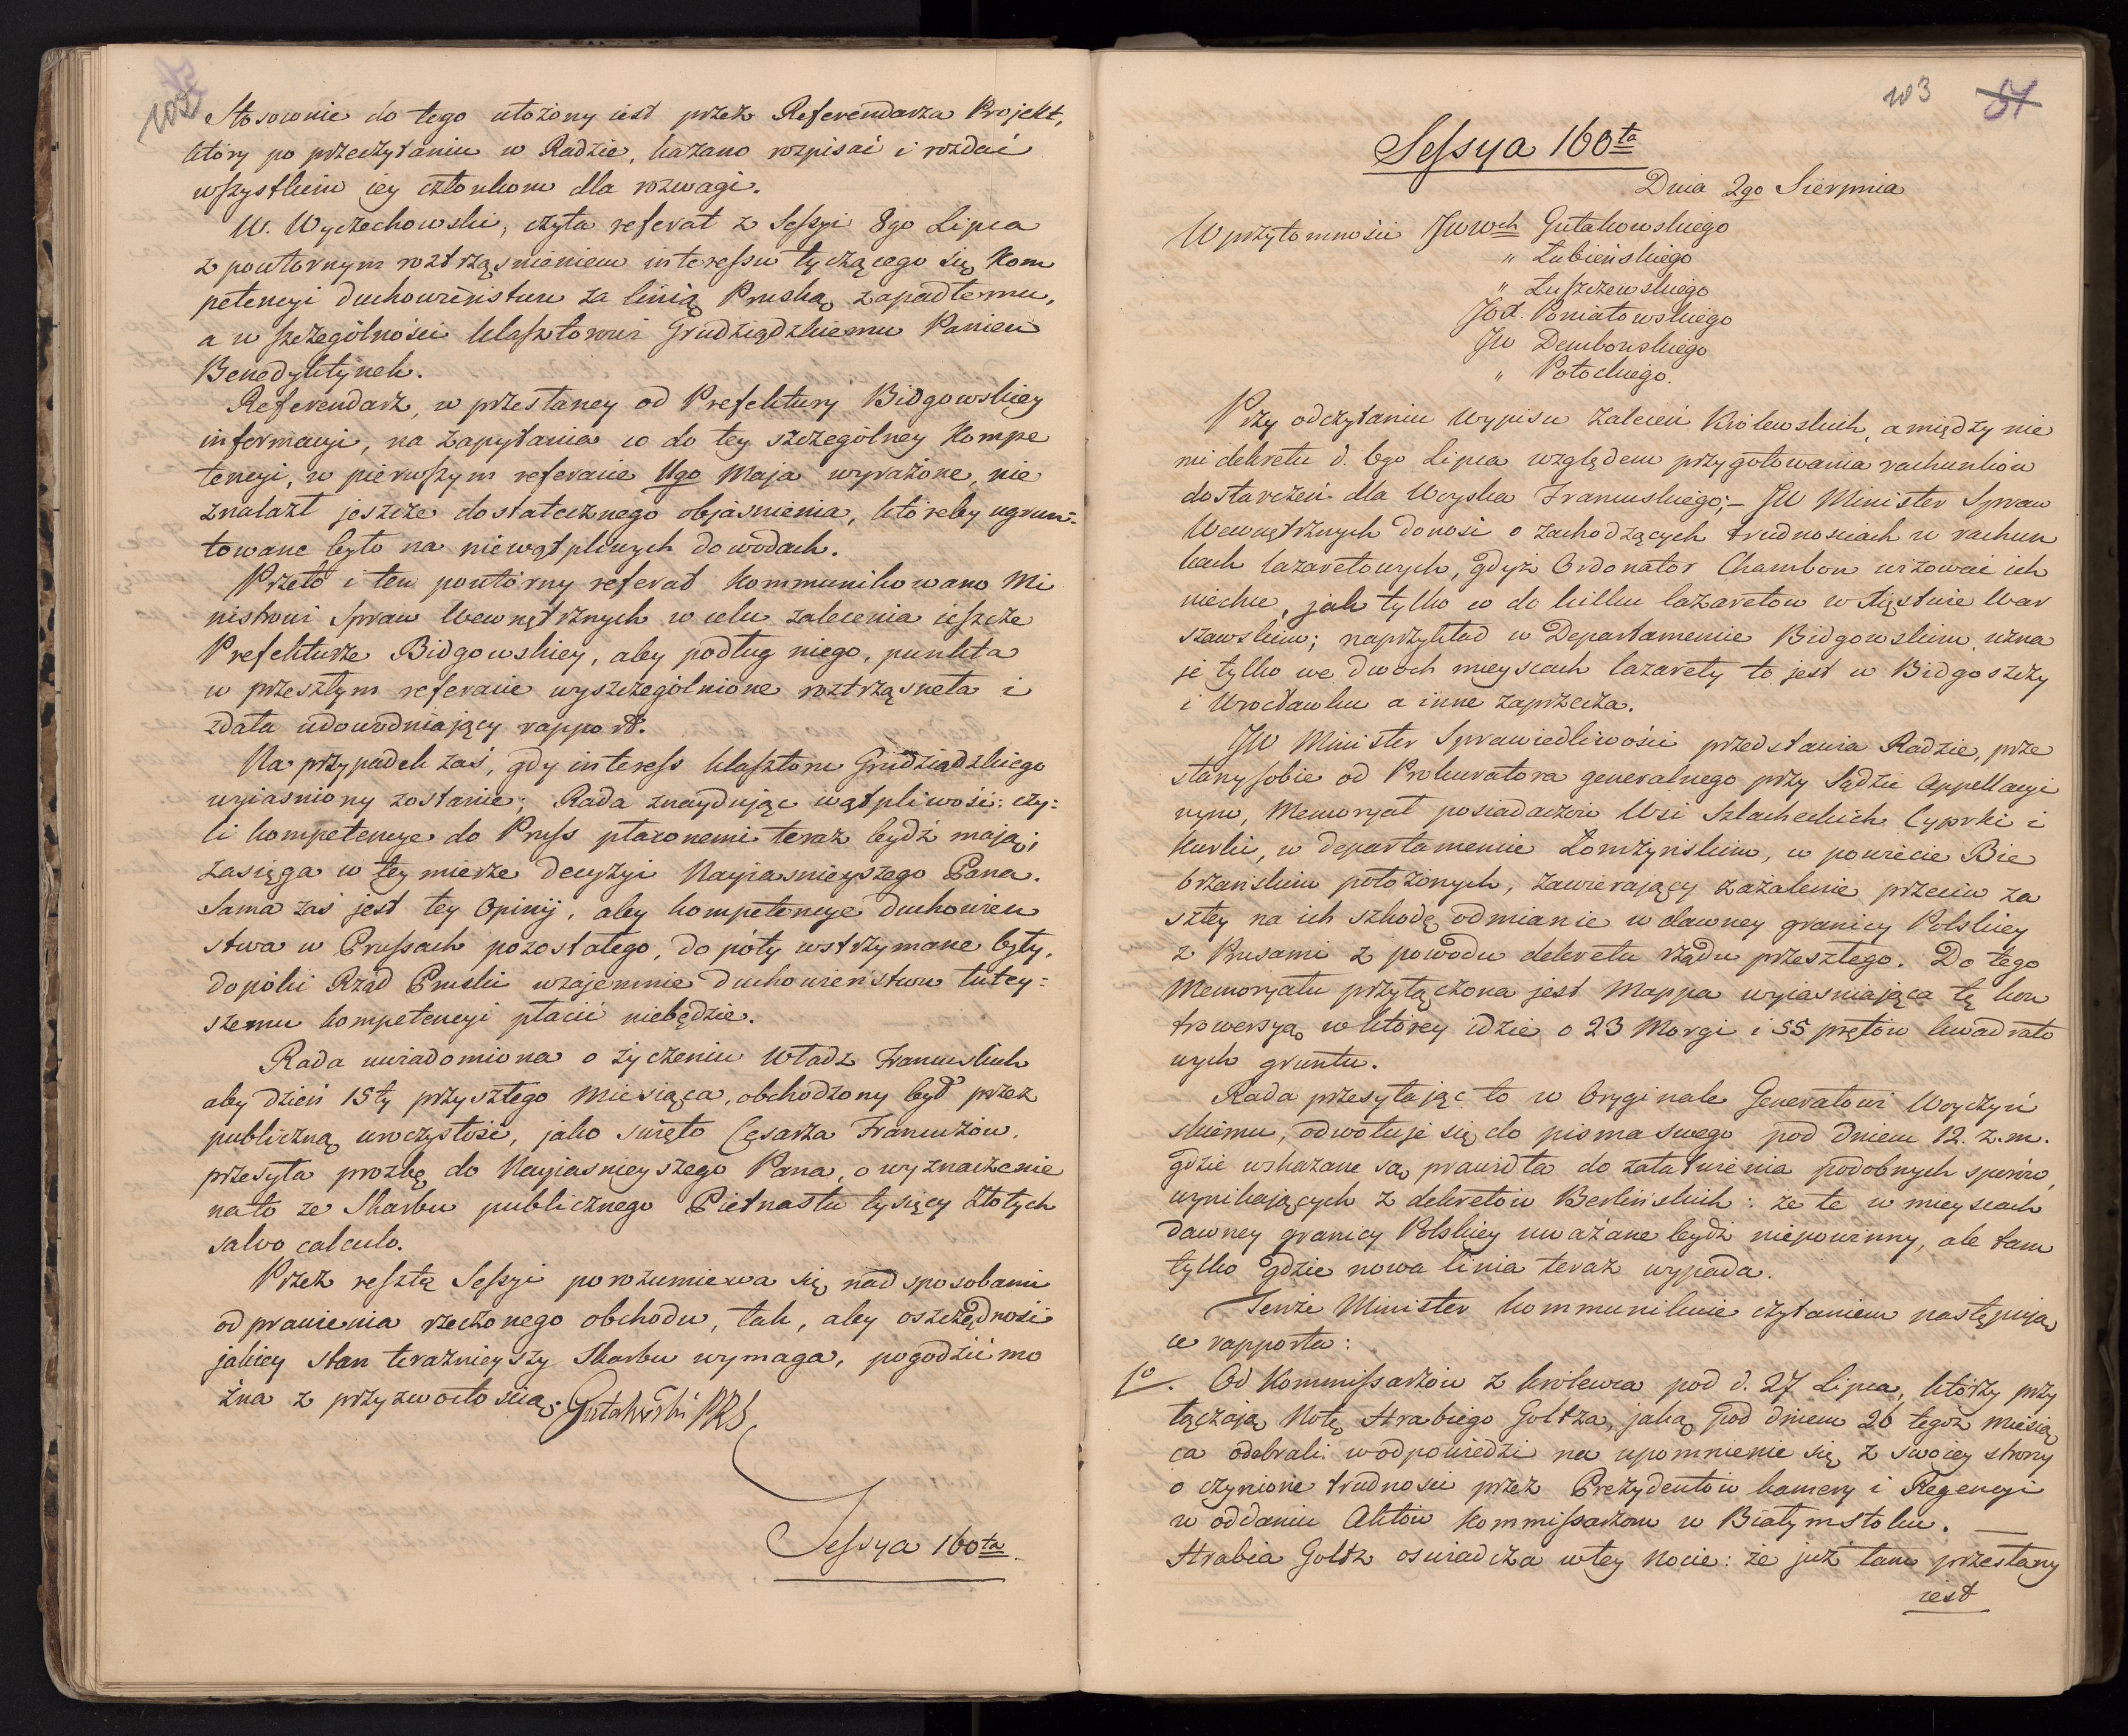 102
Stosownie do tego ułożony iest przez Referendarza Projekt,
który po przeczytaniu w Radzie, kazano rozpisać i rozdać
wszystkim iey członkom dla rozwagi.
W. Wyczechowski, czyta referat z Sessyi 8go Lipca
z powtornym roztrząśnieniem interessu tyczącego się kom
petencyi duchowieństwu za linią Pruską zapadłemu,
a w szczególności klasztorowi Grudziądzkiemu Panien
Benedyktynek.
Referendarz, w przesłaney od Prefektury Bidgowskiey
informacyi, na zapytania co do tey szczególney kompe
tencyi, w pierwszym referacie 11go Maja wyrażone, nie
znalazł jeszcze dostatecznego objaśnienia, któreby ugrun=
towane było na niewątpliwych dowodach.
Przeto i ten powtórny referat kommunikowano Mi
nistrowi Spraw Wewnętrznych w celu zalecenia ieszcze
Prefekturze Bidgowskiey, aby podług niego, punkta
w przeszłym referacie wyszczególnione roztrząsneła i
zdała udowodniający rapport.
Na przypadek zaś, gdy interess klasztoru Grudziądzkiego
wyiasniony zostanie; Rada znaydując wątpliwość: czy=
li kompetencye do Pruss płaconemi teraz bydź mają;
zasięga w tey mierze decyzyi Nayiasnieyszego Pana.
Sama zaś jest tey Opinij, aby kompetencye duchowień
stwa w Prussach pozostałego, dopóty wstrzymane były,
dopóki Rząd Pruski wzajemnie duchowieństwu tutey=
szemu kompetencyi płacić niebędzie.
Rada uwiadomiona o życzeniu Władz Francuskich
aby dzień 15ty przyszłego Miesiąca, obchodzony był przez
publiczną uroczystość, jako swięto Cesarza Francuzów,
przesyła prozbę do Nayiasnieyszego Pana, o wyznaczenie
nato ze Skarbu publicznego Piętnastu tysięcy Złotych
salvo calculo.
Przez resztę Sessyi porozumiewa się nad sposobami
odprawienia rzeczonego obchodu, tak, aby oszczędność
jakiey stan teraznieyszy Skarbu wymaga, pogodzić mo
żna z przyzwoitością. Gutakowski PRS
Sessya 160ta.
103 51
Sessya 160ta
Dnia 2go Sierpnia
W przytomności JWWch Gutakowskiego
" Łubieńskiego
" Łuszczewskiego
JOX. Poniatowskiego
JW Dembowskiego
" Potockiego.
Przy odczytaniu wypisu zaleceń Królewskich, a między nie
mi dekretu d. 6go Lipca względem przygotowania rachunków
dostarczeń dla Woyska Francuskiego;- JW Minister Spraw
Wewnętrznych donosi o zachodzących trudnosciach w rachun
kach lazaretowych, gdyż Ordonator Chambon wizować ich
niechce, jak tylko co do kilku lazaretow w Xięstwie War
szawskim; naprzykład w Departamencie Bidgowskim uzna
je tylko we dwoch mieyscach lazarety to jest w Bidgoszczy
i Wrocławku a inne zaprzecza.
JW Minister Sprawiedliwości przedstawia Radzie, prze
słany sobie od Prokuratora generalnego przy Sądzie Appellacyi
nym, Memoryał posiadaczów Wsi Szlacheckich Cyprki i
Kurki, w departamencie Łomżyńskim, w powiecie Bie
brzańskim położonych, zawierający zażalenie przeciw za
szłey na ich szkodę odmianie w dawney granicy Polskiey
z Prusami z powodu dekretu rządu przeszłego. Do tego
Memoryału przyłączona jest Mappa wyiasniająca tę kon
trowersyą w którey idzie o 23 Morgi i 55 prętów kwadrato
wych gruntu.
Rada przesyłając to w Oryginale Generałowi Woyczyń
skiemu, odwołuje się do pisma swego pod dniem 12. z. m.
gdzie wskazane są prawidła do załatwienia podobnych sporów,
wynikających z dekretów Berlińskich: że te w mieyscach
dawney granicy Polskiey uważane bydź niepowinny, ale tam
tylko gdzie nowa linia teraz wypada.
Tenże Minister kommunikuie czytaniem następują
ce rapporta:
1o. Od Kommissarzów z Królewca pod d. 27 Lipca, którzy przy
łączają Notę Hrabiego Goltza, jaką pod dniem 26 tegoż miesią
ca odebrali w odpowiedzi na upomnienie się z swoiey strony
o czynione trudności przez Prezydentów kamery i Regencyi
w oddaniu Aktów kommissarzom w Białymstoku. —
Hrabia Goltz oświadcza w tey Nocie: że już tam przesłany
iest